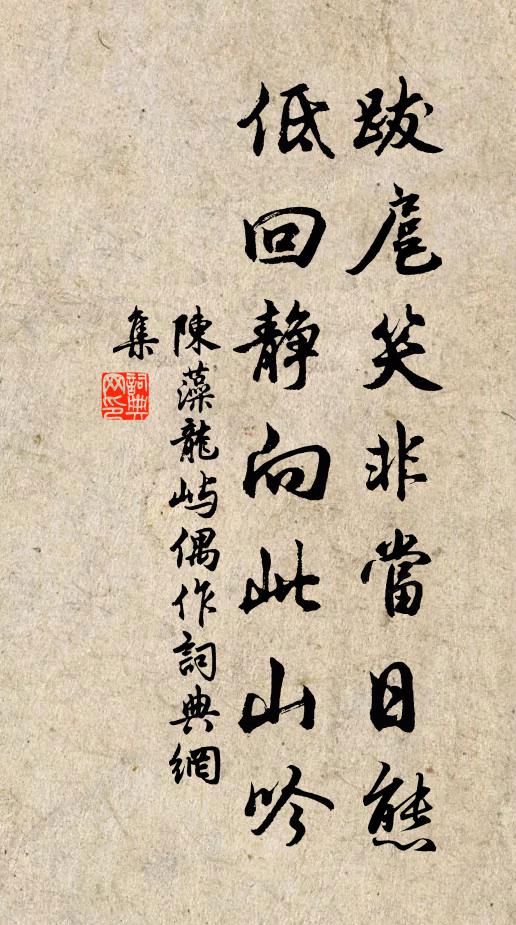 跋扈笑非當日態
低回静向此山吟
陳藻龍屿偶作詞典網
集
詞典網印